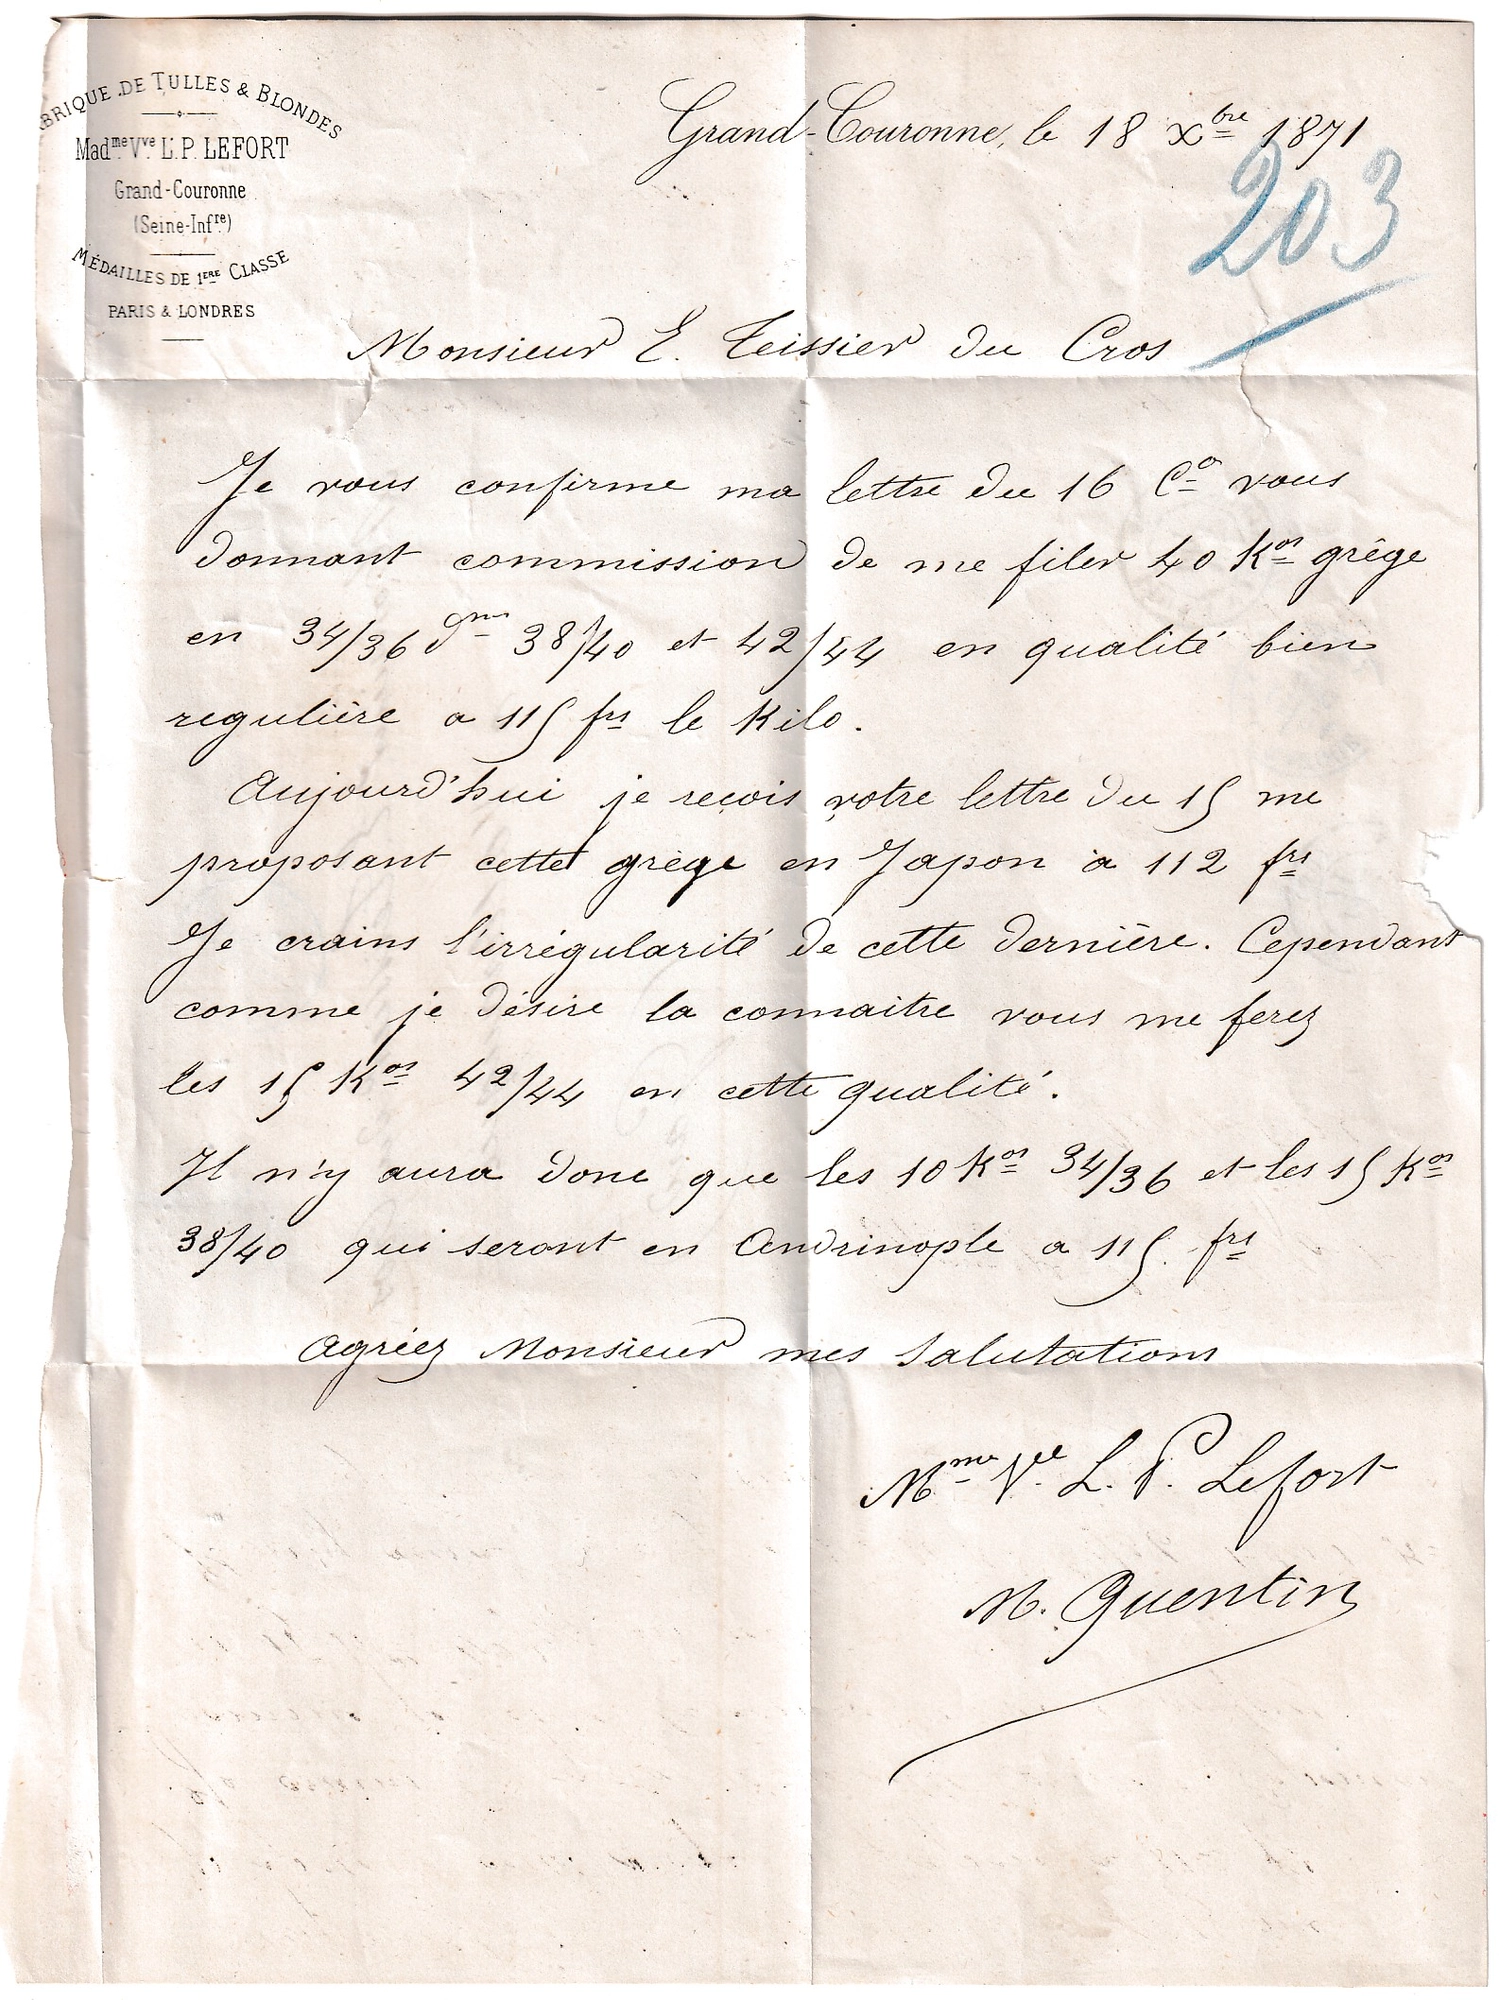 BRIQUE DE TULLES & BLONDES
Mad.me Vve L.P. LEFORT
Grand-Couronne
(Seine-Infre)
MÉDAILLES DE 1ERE CLASSE
PARIS & LONDRES
Grand-Couronne, le 18 Xbre 1871
203
Monsieur E. Teissier du Cros
Je vous confirme ma lettre du 16 Ct vous
donnant commission de me filer 40 Kos grège
en 34/36 drs 38/40 et 42/44 en qualité bien
regulière a 115 frs le Kilo.
Aujourd'hui je reçois votre lettre du 15 me
proposant cette grège en Japon à 112 frs
Je crains l'irrégularité de cette dernière. Cependant
comme je désire la connaitre vous me ferez
les 15 Kos 42/44 en cette qualité.
Il n'y aura donc que les 10 Kos 34/36 et les 15 Kos
38/40 qui seront en Andrinople a 115 frs
Agréez Monsieur mes salutations
Mme Vve L. P. Lefort
M. Quentin